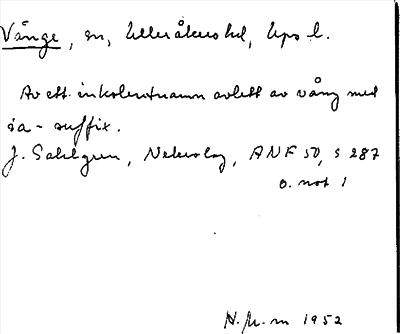 Vänge, sn, Ulleråkers hd, Upps l.
Av ett inkolentnamn avlett av vång med
ia-suffix.
J. Sahlgren, Nekrolog, ANF 50, s 287
o. not 1
N. fr. m 1952